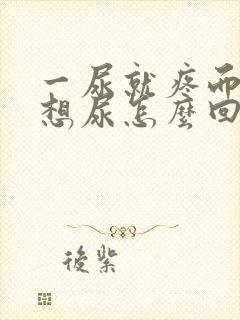 一尿就疼而
想尿怎麼回
後紫